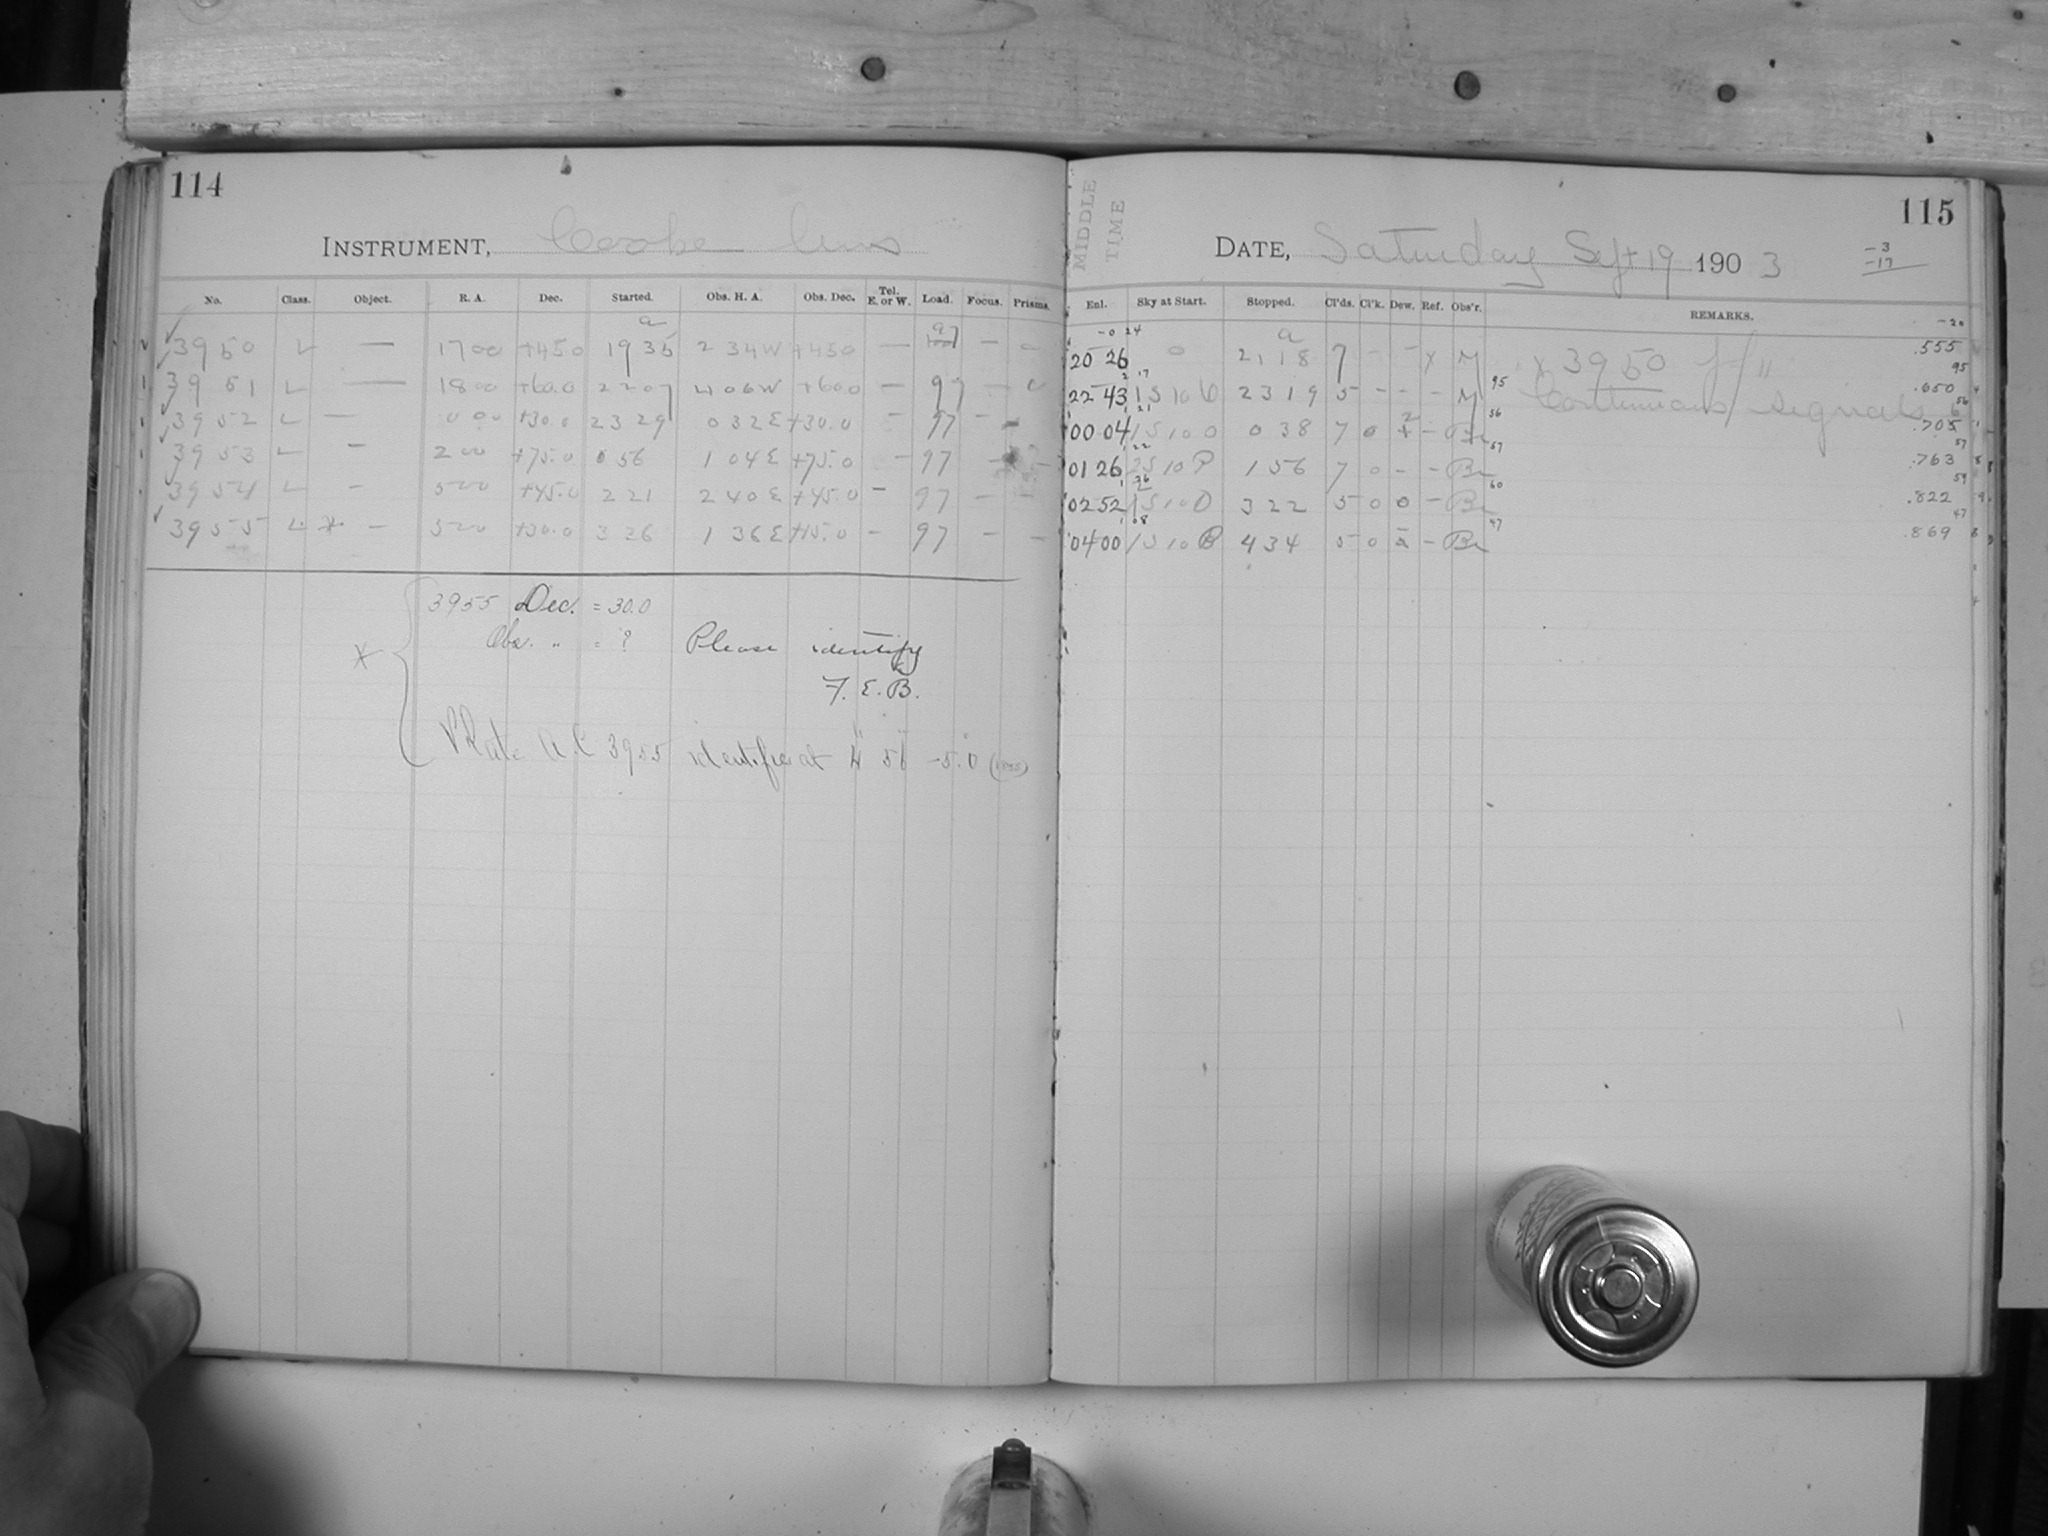 114
INSTRUMENT, Cooke Lens
No. Class. Object. R. A. Dec. Started. Obs. H. A. Obs. Dec. Tel. E. or W. Load. Focus. Prisms.
3950 L — 17 00 +45.0 19 35 2 34 W +45.0 — 97 —
3951 L — 18 00 +60.0 22 07 4 06 W +60.0 — 97 —
3952 L — 0 00 +30.0 23 29 0 32 E +30.0 — 97 — —
3953 L — 2 00 +75.0 0 56 1 04 E +75.0 — 97 — —
3954 L — 5 00 +45.0 2 21 2 40 E +45.0 — 97 — —
3955 L * — 5 00 +30.0 3 26 1 36 E +15.0 — 97 — —
* 3955 Dec. = 30.0
Obs. " = ? Please identify
F. E. B.
Plate A.C 3955 identified at 4 56 -5.0
MIDDLE TIME
115
DATE, Saturday Sept 19 1903
-3
-17
-20
Enl. Sky at Start. Stopped. Cl'ds. Cl'k. Dew. Ref. Obs'r. REMARKS.
-0 24
20 26 0 21 18 7 - - x M x 3950 .555
2 17
22 43 1S 10 23 19 5 - - - M 95 Continuous signals .650
1 21
00 04 1S 10 0 0 38 7 0 - 56 .705
1 22
01 26 1S 10 P 1 56 7 0 - - Br 57 .763
1 26
02 52 1S 10 0 3 22 5 0 0 - Br 60 .822
1 08
04 00 1S 10 4 34 5 0 2 - Br 47 .869